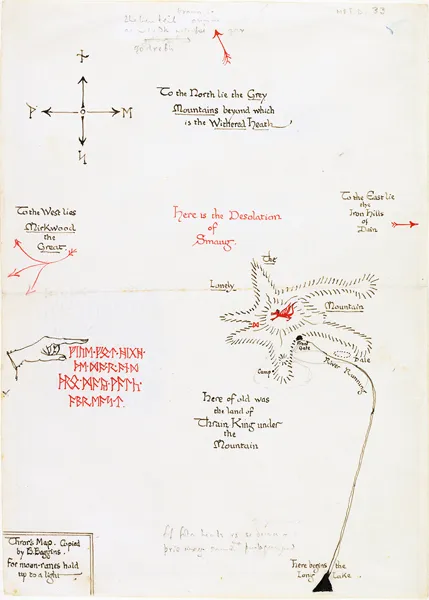 ᚹ ᛖ
ᛋ
To the North lie the Grey
Mountains beyond which
is the Withered Heath
To the West lies
Mirkwood
the
Great
Here is the Desolation
of
Smaug.
To the East lie
the
Iron Hills
of
Dain
The
Lonely
Mountain
Front
Gate
Dale
River Running
Camp
ᚠᛁᚢᛖ·ᚠᛟᛏ·ᚻᛁᚷᚻ·
ᚪᛒᚱᛖᚪᛋᛏ·
Here of old was
the land of
Thrain King under
the
Mountain
Thror's Map. Copied
by B. Baggins.
For moon-runes hold
up to a light
Here begins the
Long Lake